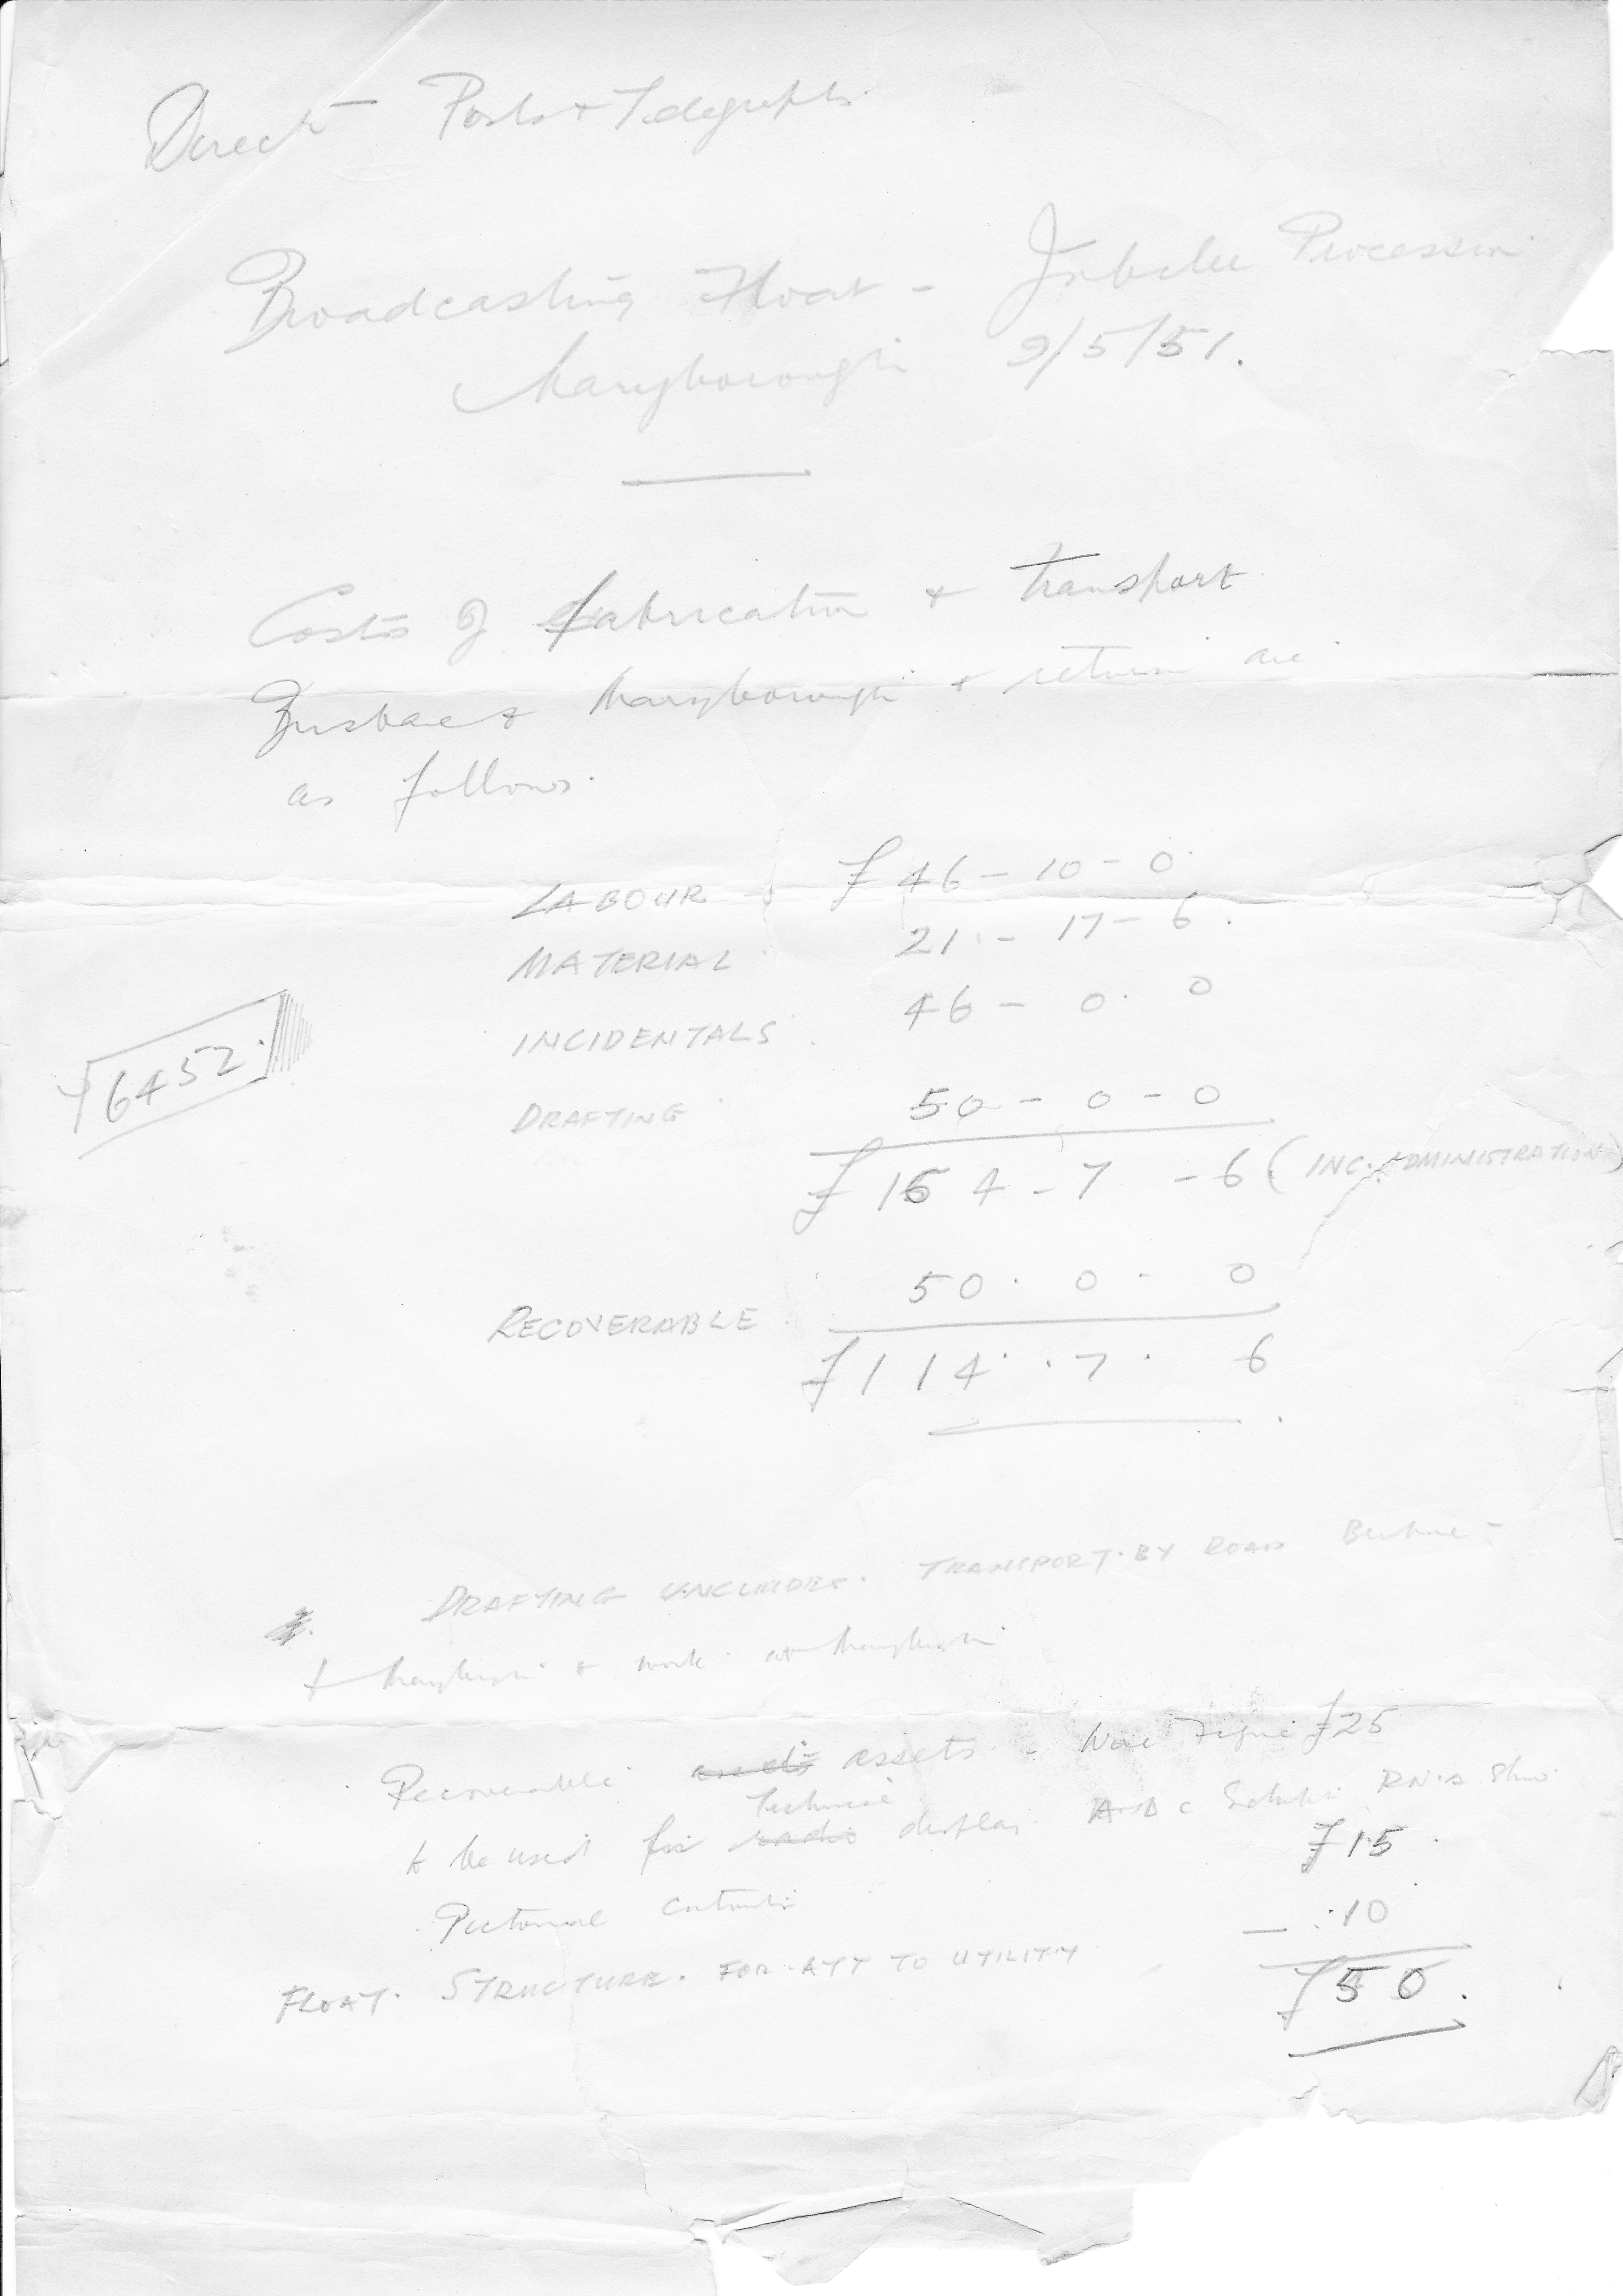 Direct Posts & Telegraphs
Broadcasting Float - Jubilee Procession
Maryborough 9/5/51.
Costs of fabrication & transport
Brisbane & Maryborough & return are
as follows.
LABOUR - £46 - 10 - 0
MATERIAL 21 - 17 - 6.
INCIDENTALS 46 - 0. 0
6452
DRAFTING 50 - 0 - 0
£164 - 7 - 6 (INC. ADMINISTRATION)
RECOVERABLE 50. 0 - 0
£114. . 7. 6
DRAFTING INCLUDES. TRANSPORT. BY ROAD Brisbane -
Maryborough & work at Maryborough
Recoverable assets assets - Wire Figure £25
Technical
to be used for radio display. A.B.C RN.A Show
£15.
Pictorial
10
FLOAT. STRUCTURE. FOR ATT TO UTILITY
£50.